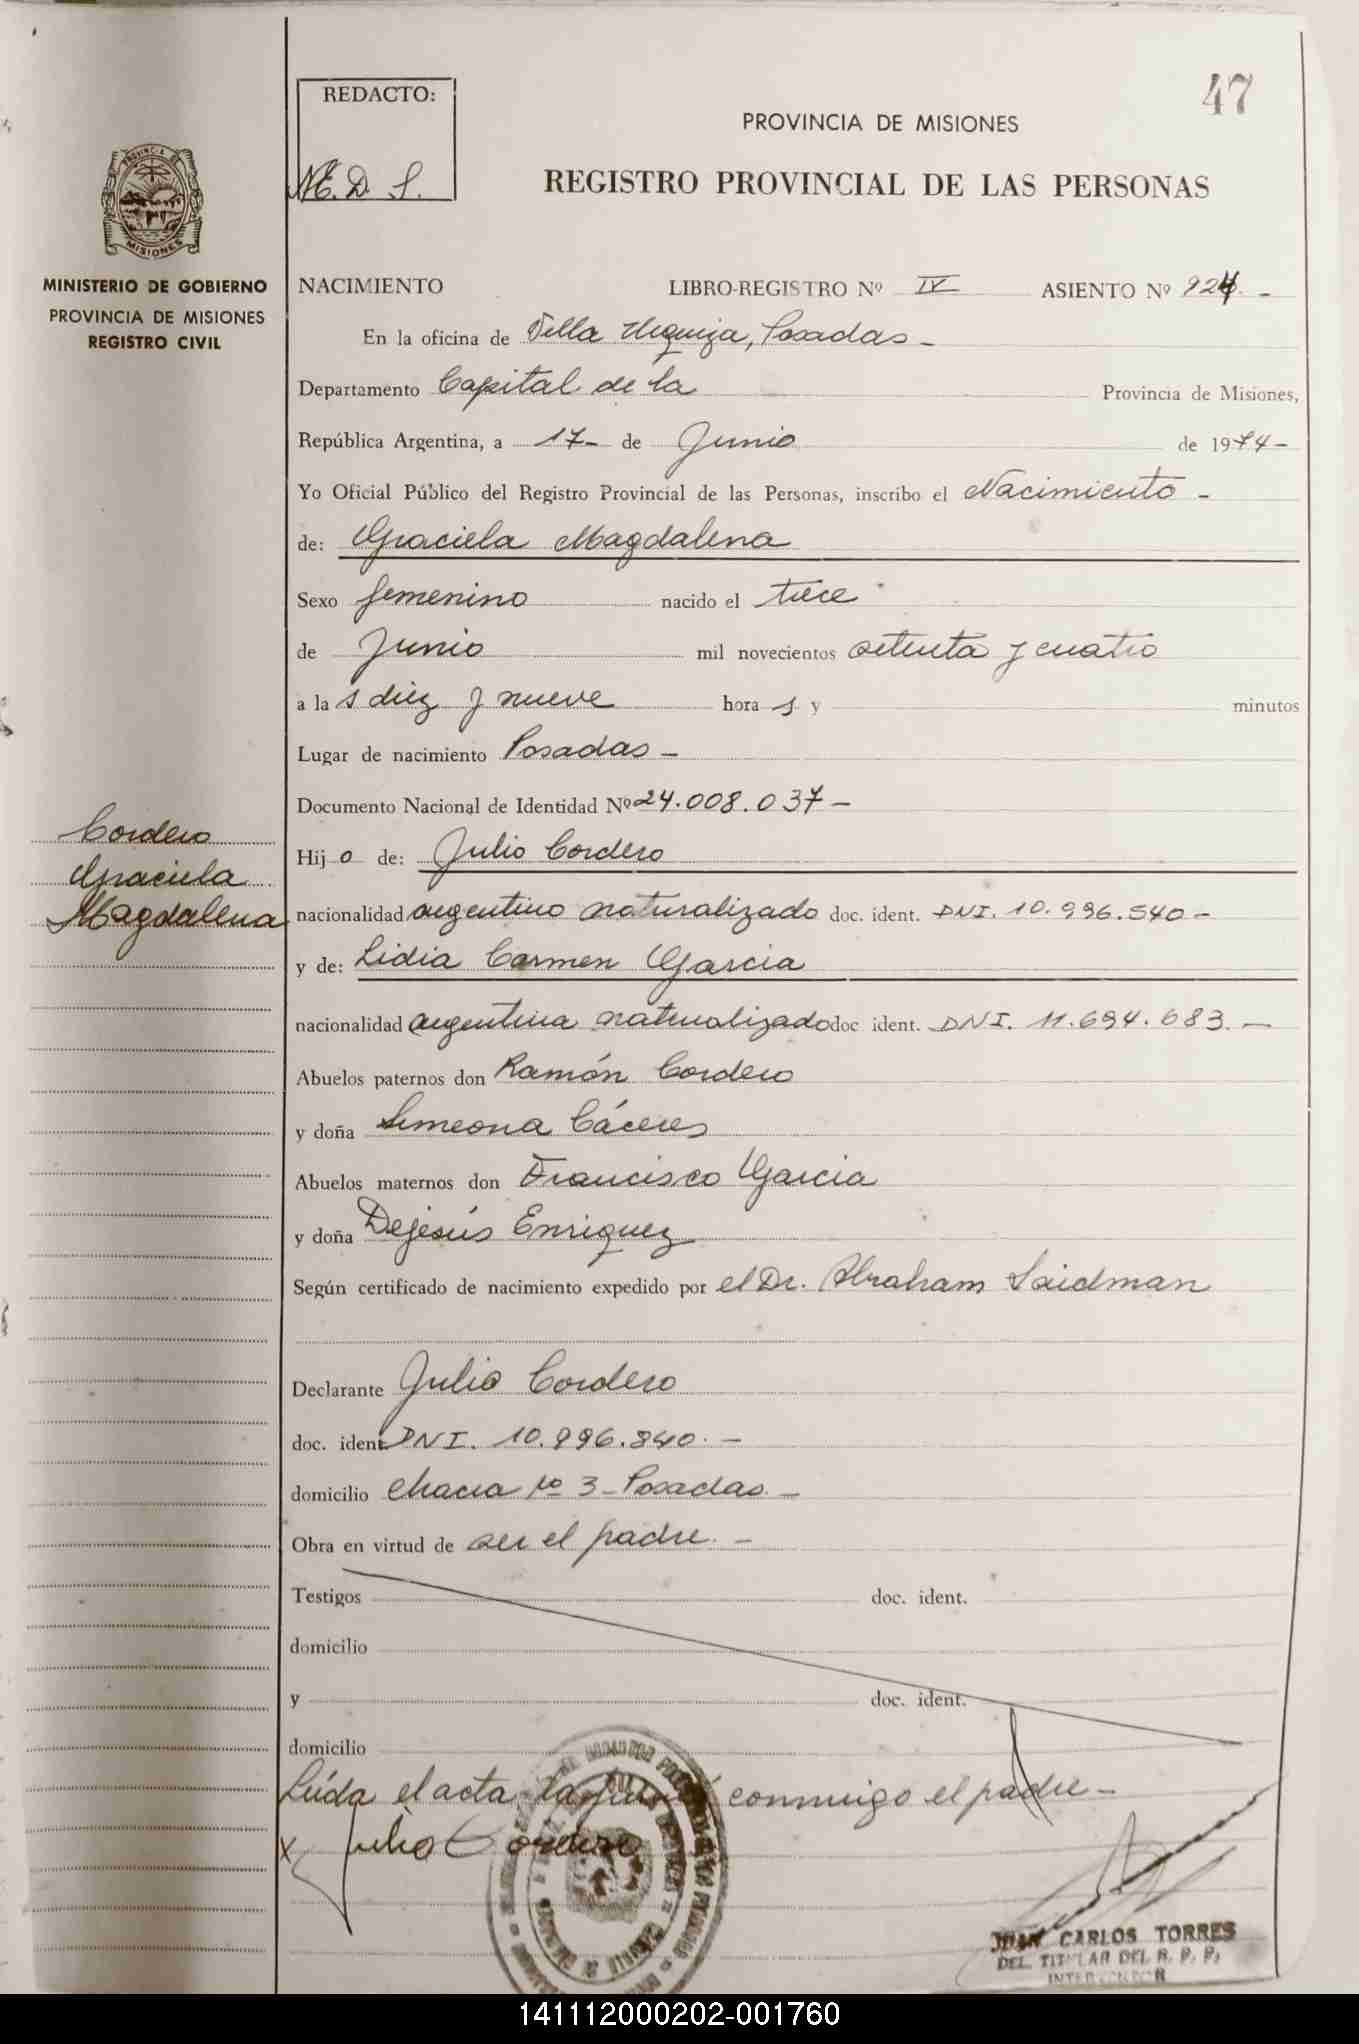 47
REDACTO:
PROVINCIA DE MISIONES
REGISTRO PROVINCIAL DE LAS PERSONAS
MINISTERIO DE GOBIERNO
PROVINCIA DE MISIONES
REGISTRO CIVIL
NACIMIENTO LIBRO-REGISTRO Nº IV ASIENTO Nº 924. -
En la oficina de Villa Urquiza, Posadas -
Departamento Capital de la Provincia de Misiones,
República Argentina, a 17- de Junio de 1974-
Yo Oficial Público del Registro Provincial de las Personas, inscribo el Nacimiento -
de: Graciela Magdalena
Sexo femenino nacido el trece
de Junio mil novecientos setenta y cuatro
a la s diez y nueve hora s y minutos
Lugar de nacimiento Posadas -
Documento Nacional de Identidad Nº 24.008.037 -
Cordero
Graciela
Magdalena
Hij o de: Julio Cordero
nacionalidad argentino naturalizado doc. ident. DNI. 10.996.540 -
y de: Lidia Carmen Garcia
nacionalidad argentina naturalizado doc ident. DNI. 11.694.683. -
Abuelos paternos don Ramón Cordero
y doña Simeona Cáceres
Abuelos maternos don Francisco Garcia
y doña Dejesús Enriquez
Según certificado de nacimiento expedido por el Dr. Abraham Saidman
Declarante Julio Cordero
doc. ident DNI. 10.996.840. -
domicilio chacra Nº 3 - Posadas. -
Obra en virtud de ser el padre. -
Testigos doc. ident.
domicilio
y doc. ident.
domicilio
Leída el acta, la conmigo el padre -
x Julio Cordero
JUAN CARLOS TORRES
DEL. TITULAR DEL R. P. P.
INTERVENTOR
141112000202-001760